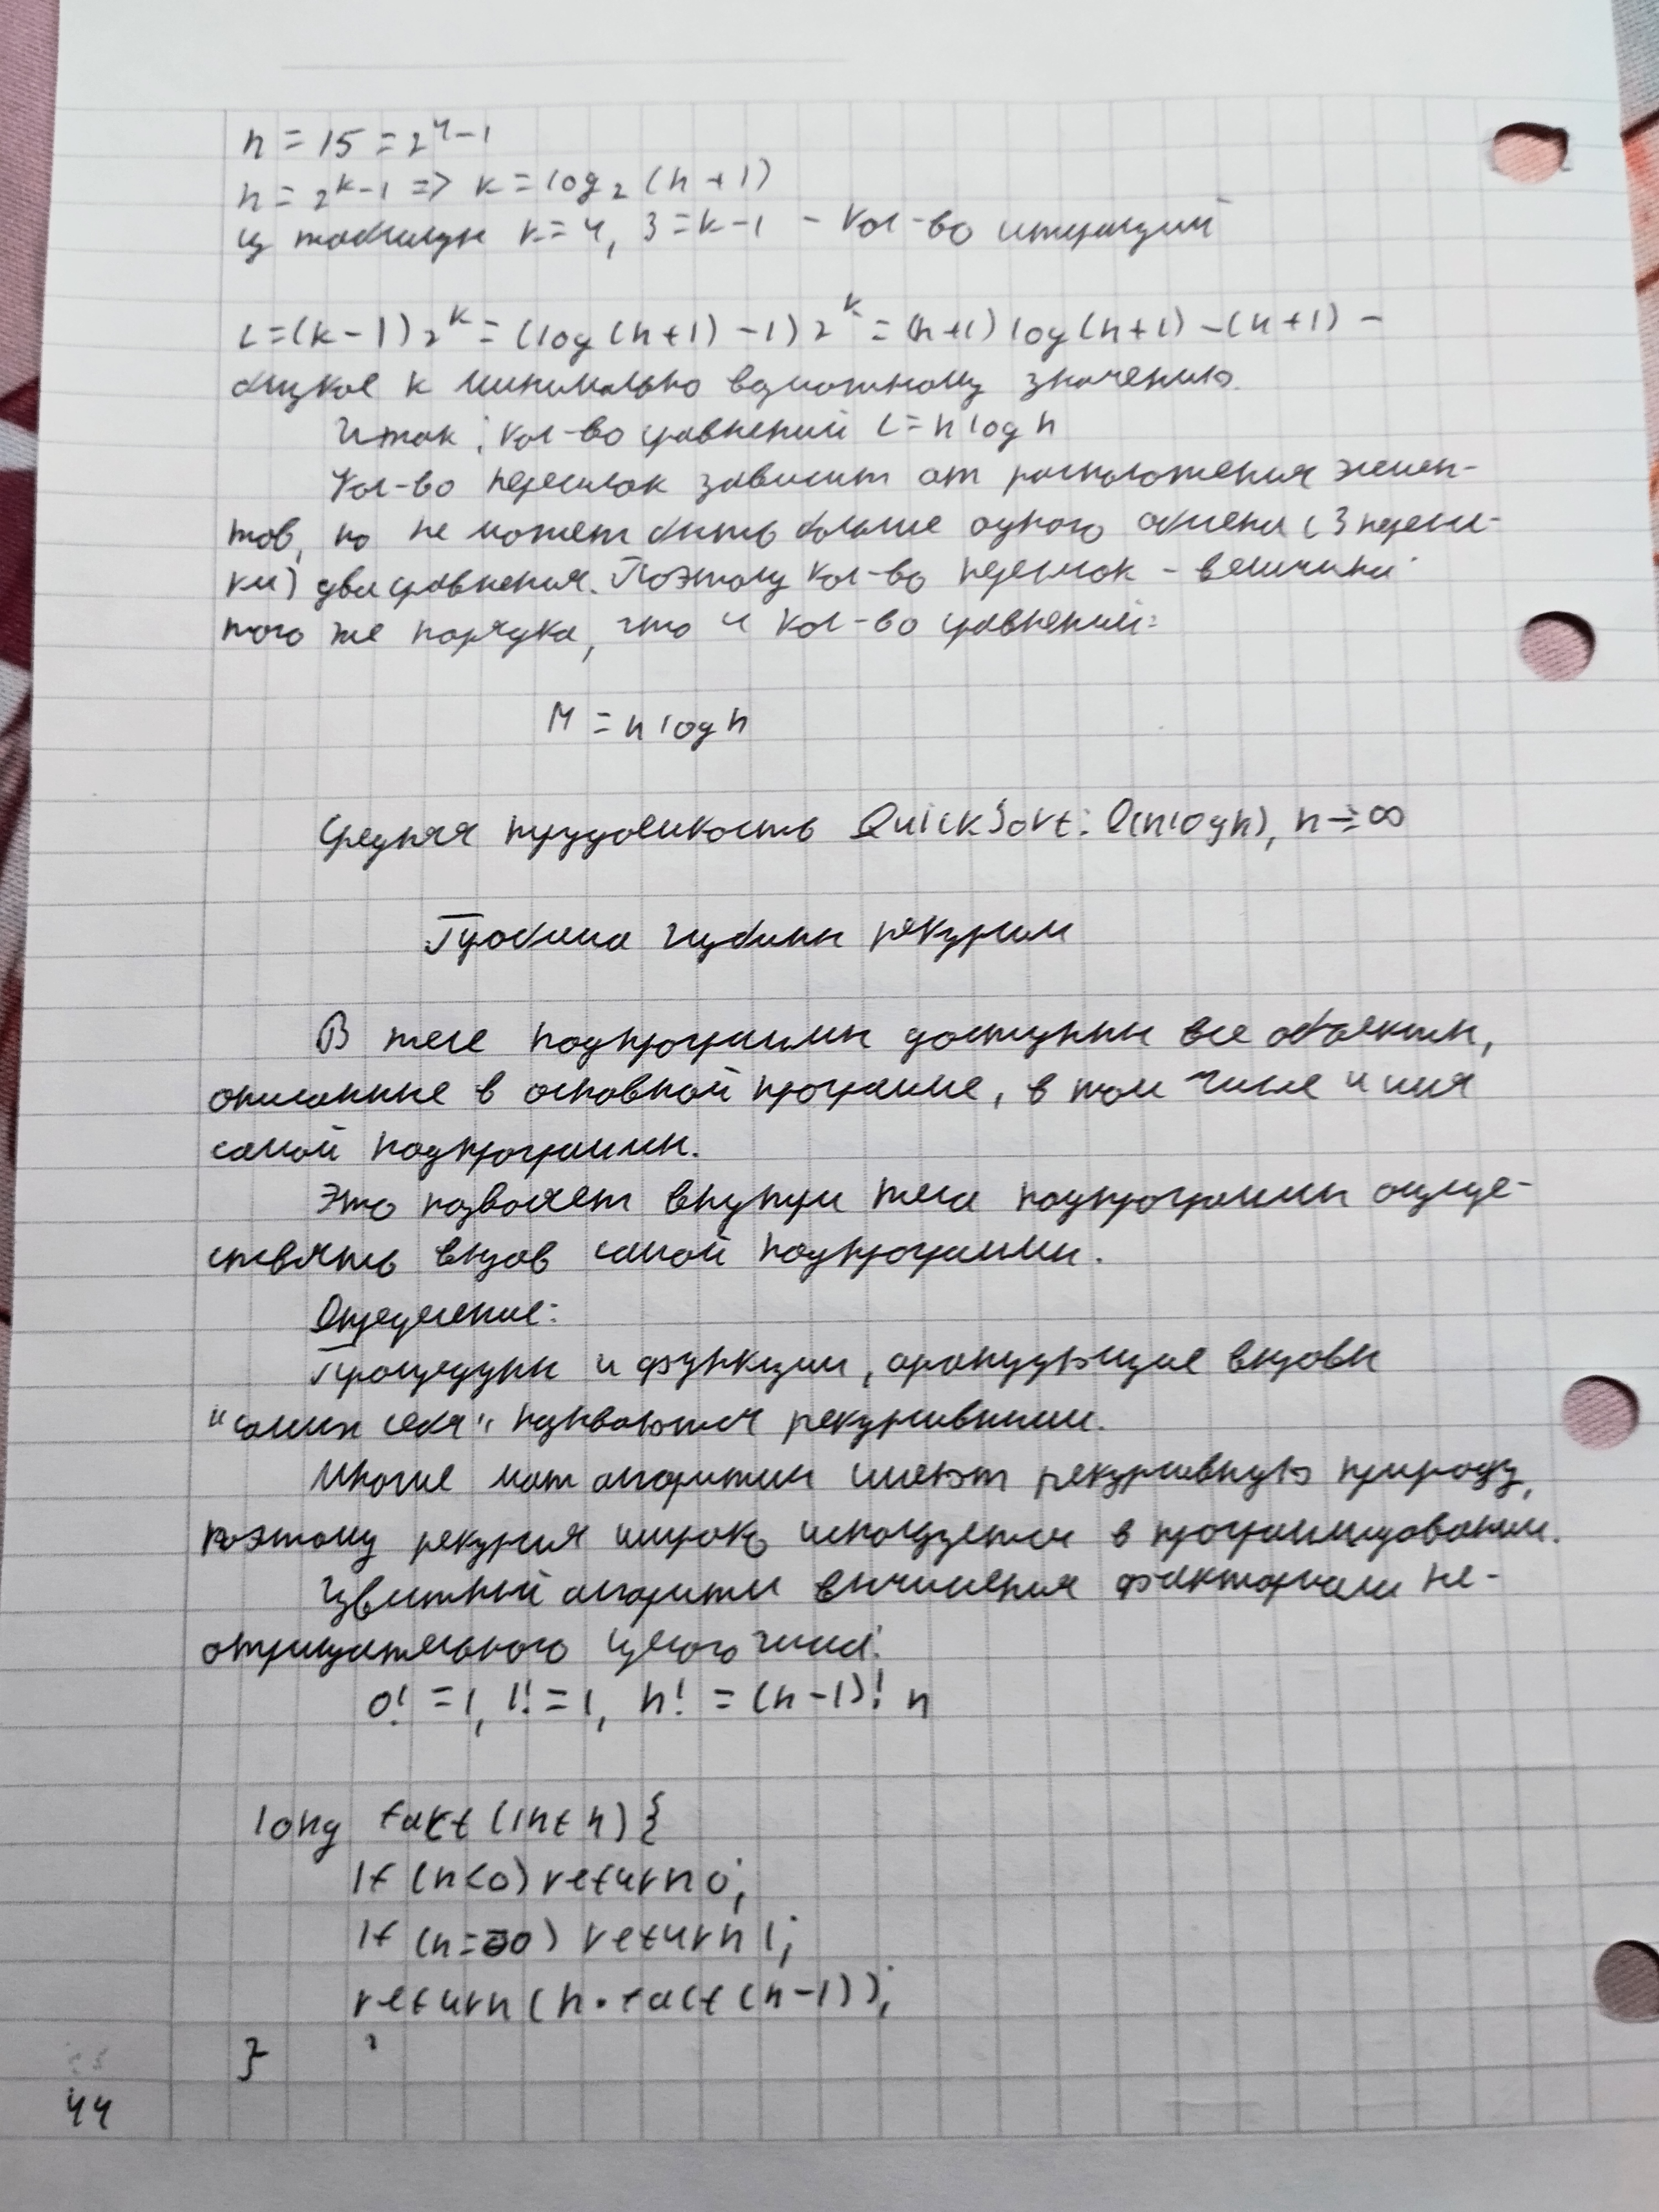 n = 15 = 2^4-1
n = 2^k-1 => k = log₂(n+1)
Из таблицы k=4, 3=k-1 - кол-во итераций
C=(k-1)2^k = (log(n+1)-1)2^k = (n+1)log(n+1)-(n+1) -
близкое к минимально возможному значению.
Итак: кол-во сравнений C=n log n
Кол-во пересылок зависит от расположения элемен-
тов, но не может быть больше одного обмена (3 пересыл-
ки) два сравнения. Поэтому кол-во пересылок - величина
того же порядка, что и кол-во сравнений:
M = n log n
Средняя трудоемкость QuickSort: O(n log n), n→∞
Проблема глубины рекурсии
В теле подпрограммы доступны все объекты,
описанные в основной программе, в том числе и имя
самой подпрограммы.
Это позволяет внутри тела подпрограммы осуще-
ствлять вызов самой подпрограммы.
Определение:
Процедуры и функции, организующие вызовы
"самих себя", называются рекурсивными.
Многие мат алгоритмы имеют рекурсивную природу,
поэтому рекурсия широко используется в программировании.
Известный алгоритм вычисления факториала не-
отрицательного целого числа:
0! = 1, 1! = 1, n! = (n-1)! n
long fact (int n) {
If (n<0) return 0;
If (n==0) return 1;
return (n·fact(n-1));
}
44